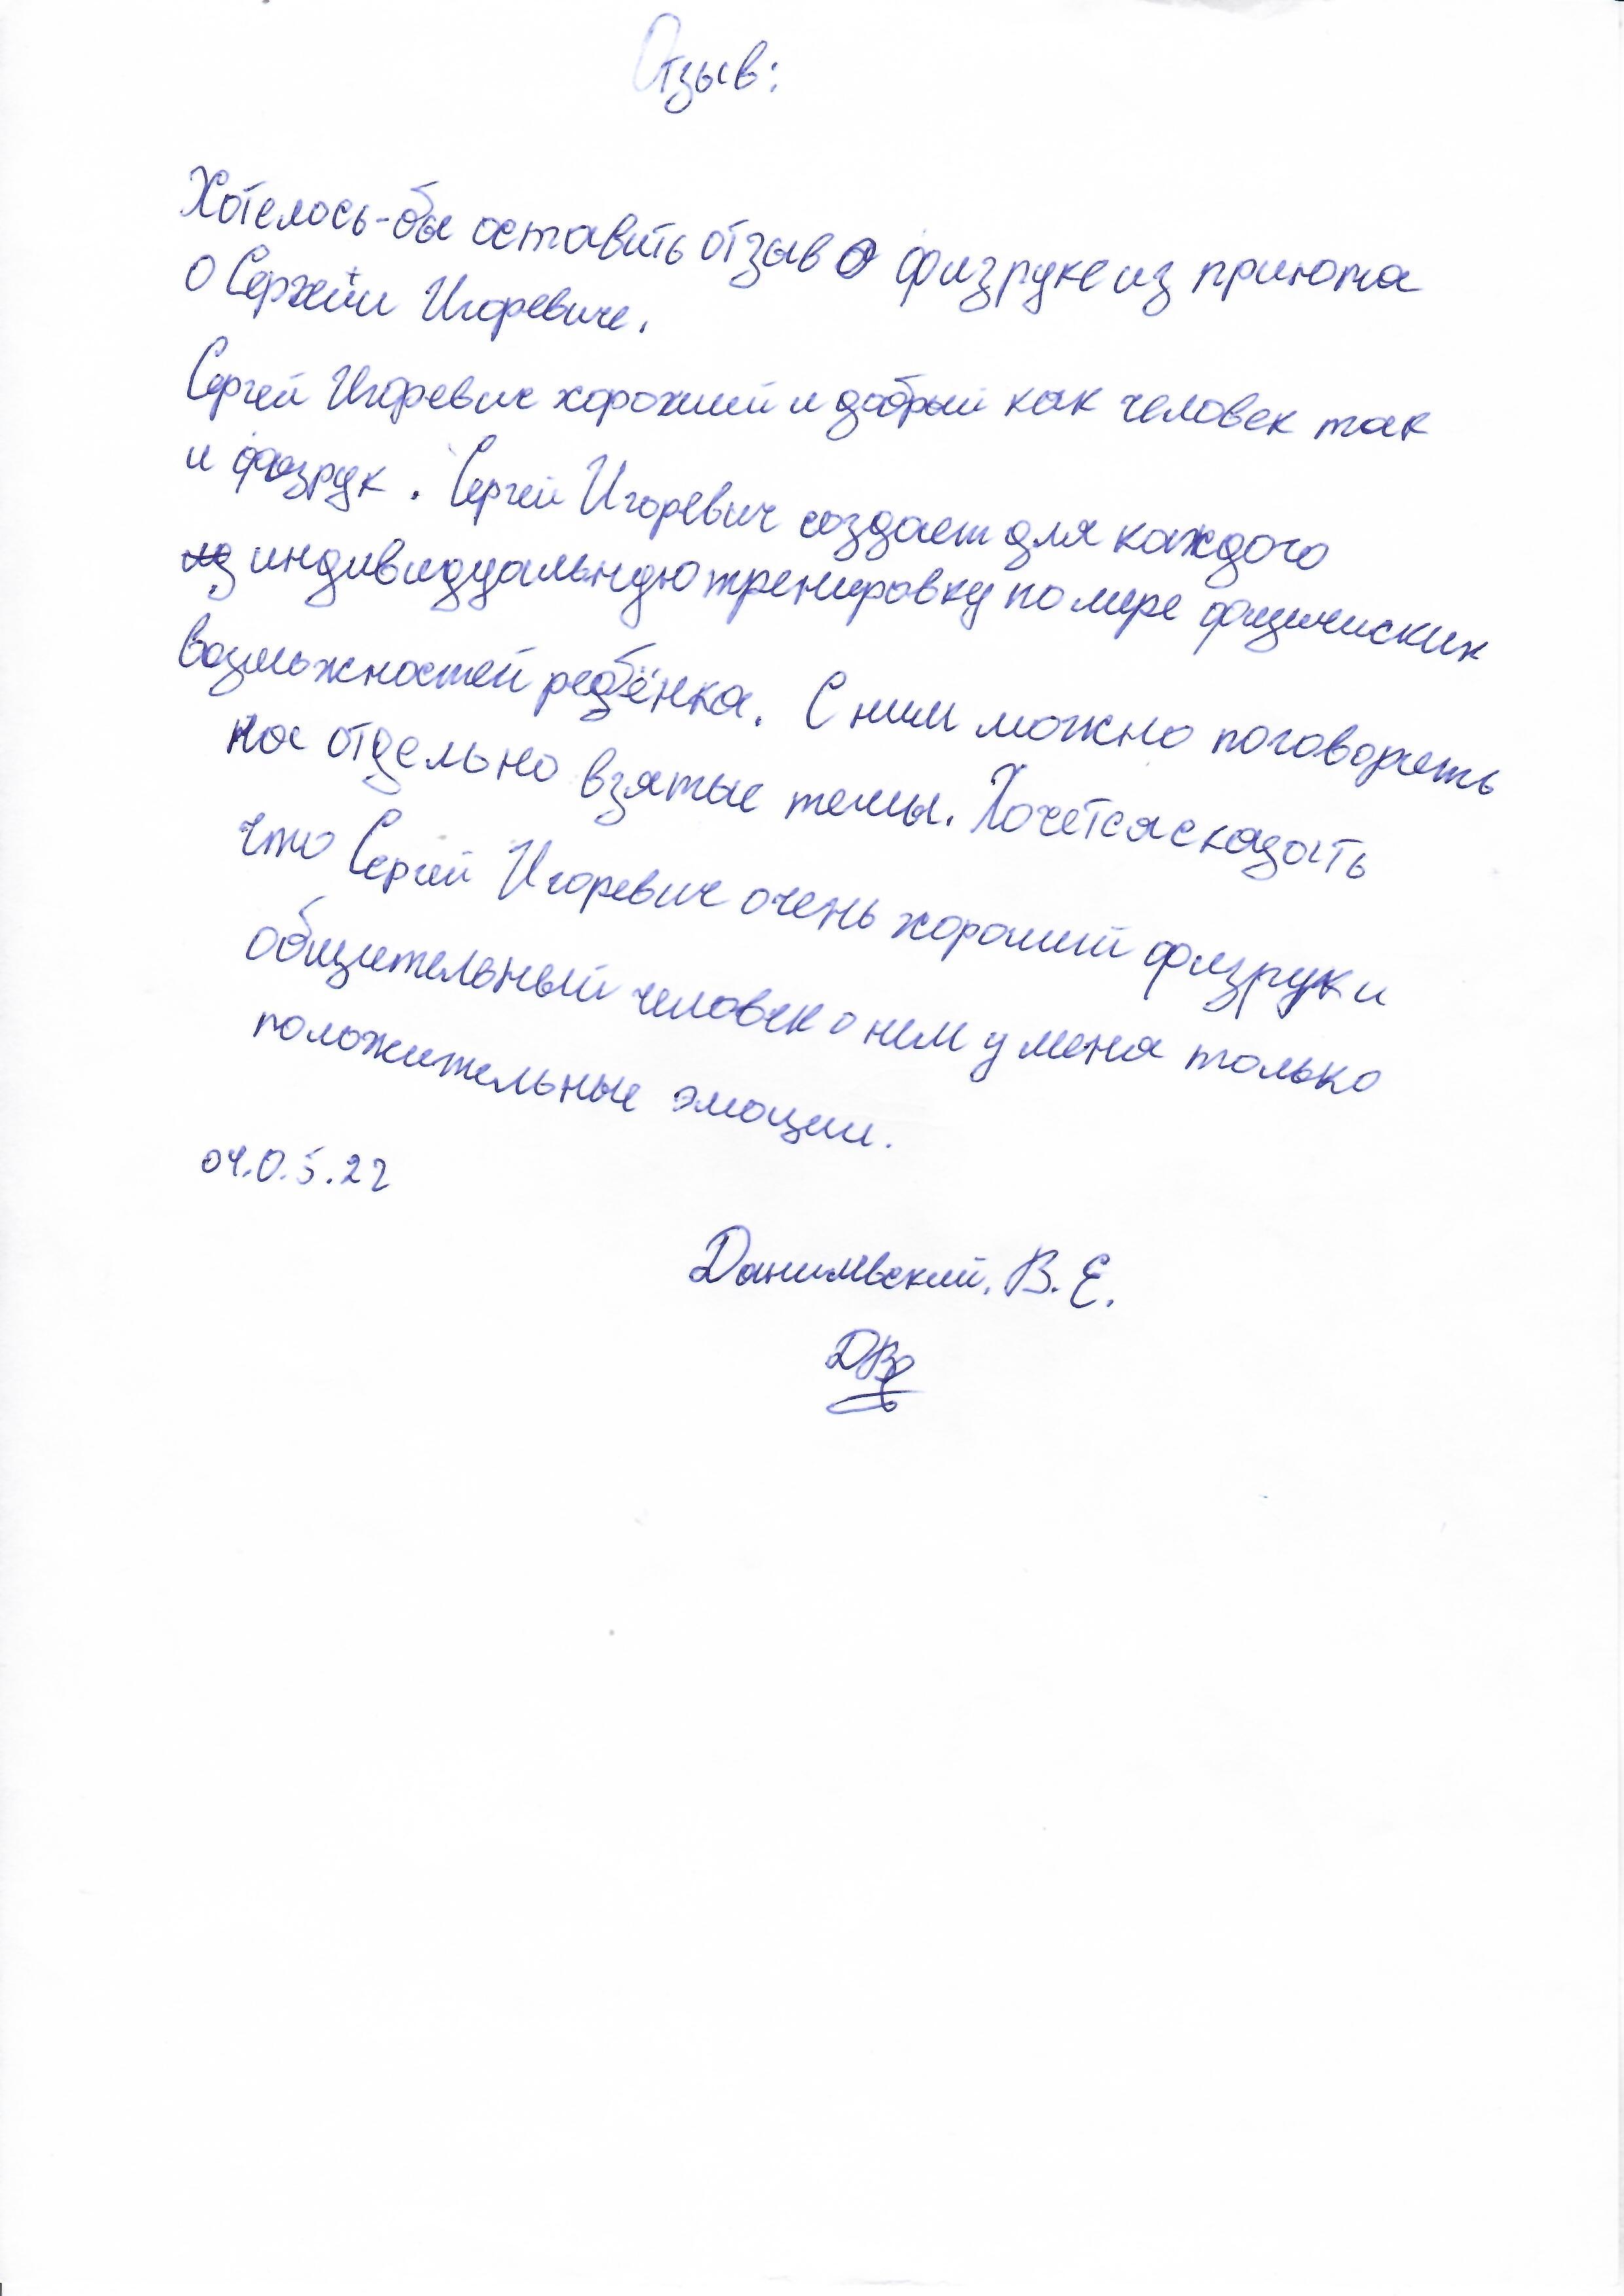 Отзыв:
Хотелось-бы оставить отзыв о физруке из приюта
О Сергеи Игоревиче.
Сергей Игоревич хороший и добрый как человек так
и физрук. Сергей Игоревич создает для каждого
индивидуальную тренировку по мере физичиских
возможностей ребёнка. С ним можно поговорить
на отдельно взятые темы. Хочется сказать
что Сергей Игоревич очень хороший физрук и
общительный человек о нем у меня только
положительные эмоции.
04.0.5.22
Данилевский. В. Е.